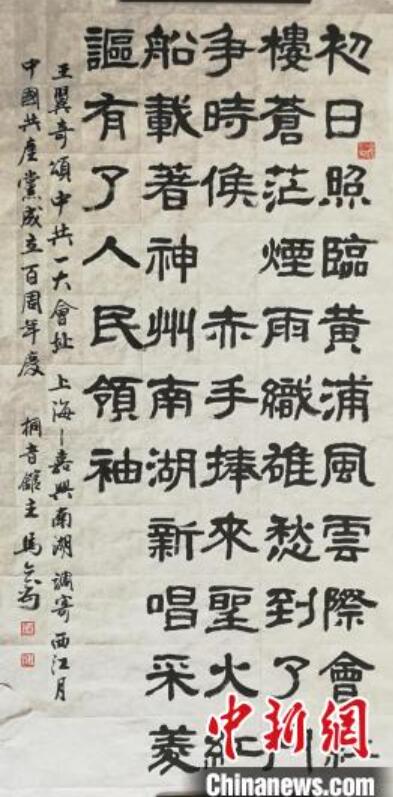 初日照臨黄浦風雲際會
樓蒼茫煙雨織愁到了
争時候 赤手捧來聖火紅
船載著神州南湖新唱采菱
謳有了人民領袖
王翼奇頌中共一大會址 上海—嘉興南湖 調寄西江月
中國共產黨成立百周年慶 桐音館主馬
中新網
Chinanews.com